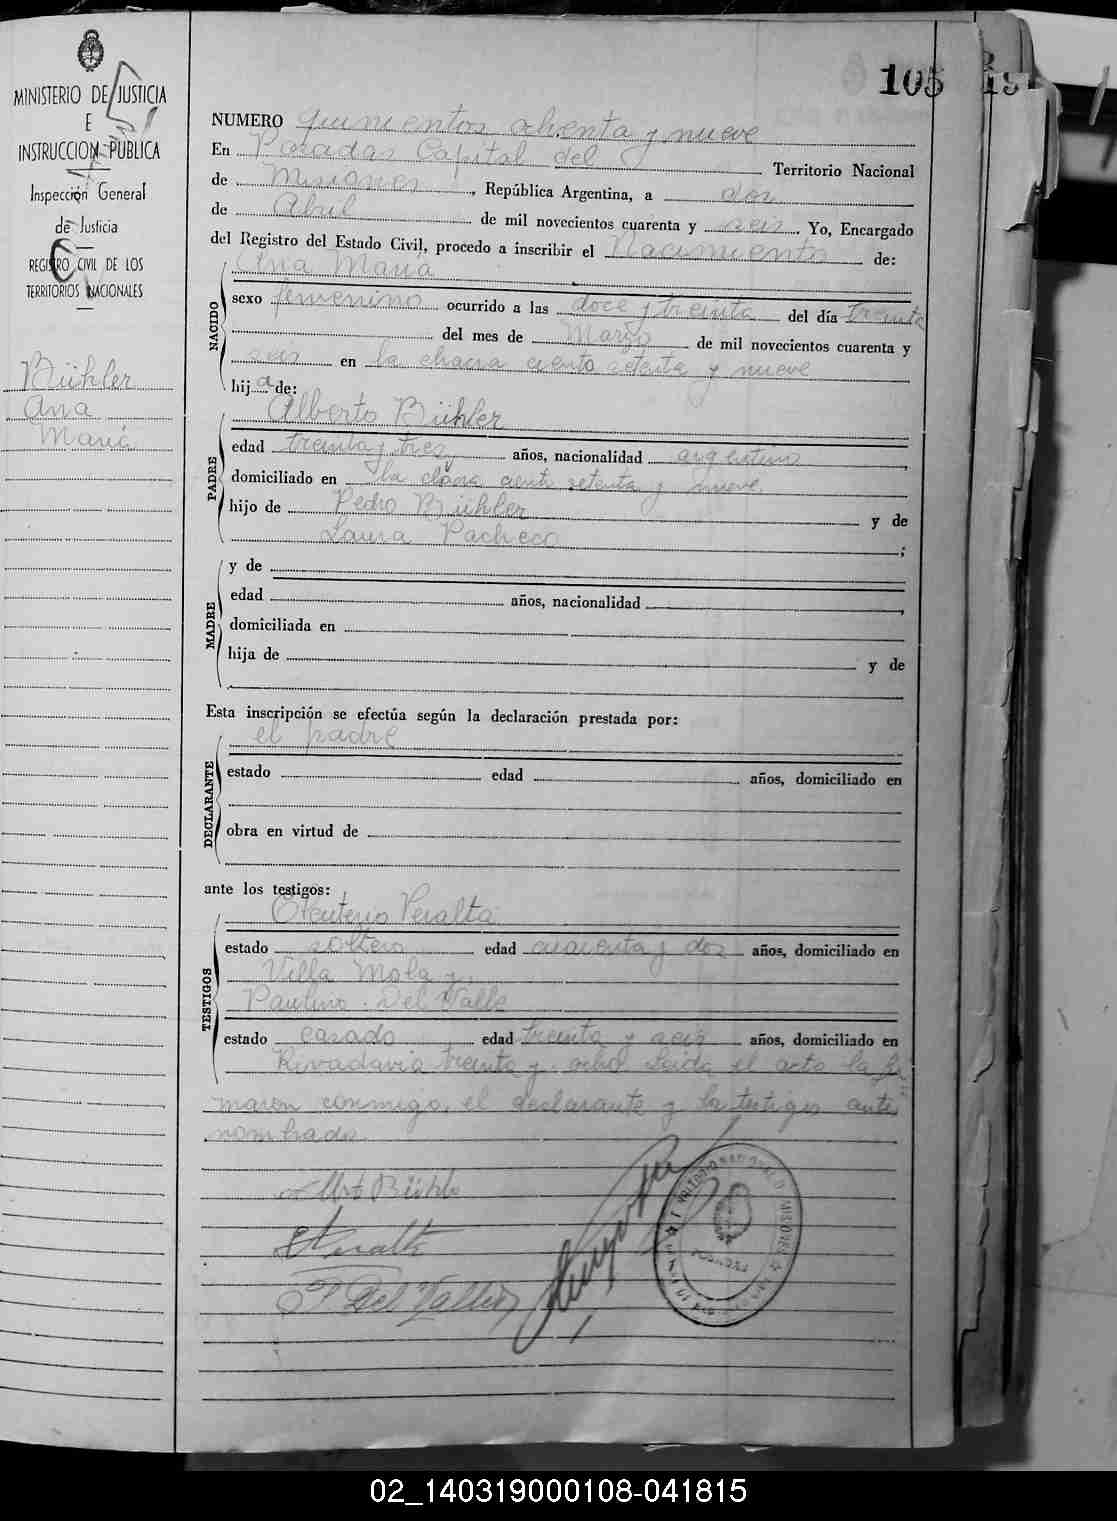 105
MINISTERIO DE JUSTICIA
E
INSTRUCCION PUBLICA
Inspección General
de Justicia
REGISTRO CIVIL DE LOS
TERRITORIOS NACIONALES
Bühler
Ana
María
NUMERO quinientos ochenta y nueve
En Posadas Capital del Territorio Nacional
de Misiones, República Argentina, a dos
de Abril de mil novecientos cuarenta y seis. Yo, Encargado
del Registro del Estado Civil, procedo a inscribir el Nacimiento de:
Ana María
NACIDO
sexo femenino ocurrido a las doce y treinta del día treinta
del mes de Marzo de mil novecientos cuarenta y
seis en la chacra ciento setenta y nueve
hija de:
Alberto Bühler
PADRE
edad treinta y tres años, nacionalidad argentino,
domiciliado en la chacra ciento setenta y nueve
hijo de Pedro Bühler y de
Laura Pacheco;
MADRE
y de
edad años, nacionalidad,
domiciliada en
hija de y de
Esta inscripción se efectúa según la declaración prestada por:
el padre
DECLARANTE
estado edad años, domiciliado en
obra en virtud de
ante los testigos:
Eleuterio Peralta
TESTIGOS
estado soltero edad cuarenta y dos años, domiciliado en
Villa Mola y
Paulino Del Valle
estado casado edad treinta y seis años, domiciliado en
Rivadavia treinta y ocho Leida el acta la fir
maron conmigo, el declarante y los testigos ante
nombrados
Bühler
EPeralta
P Del Valle
02_140319000108-041815